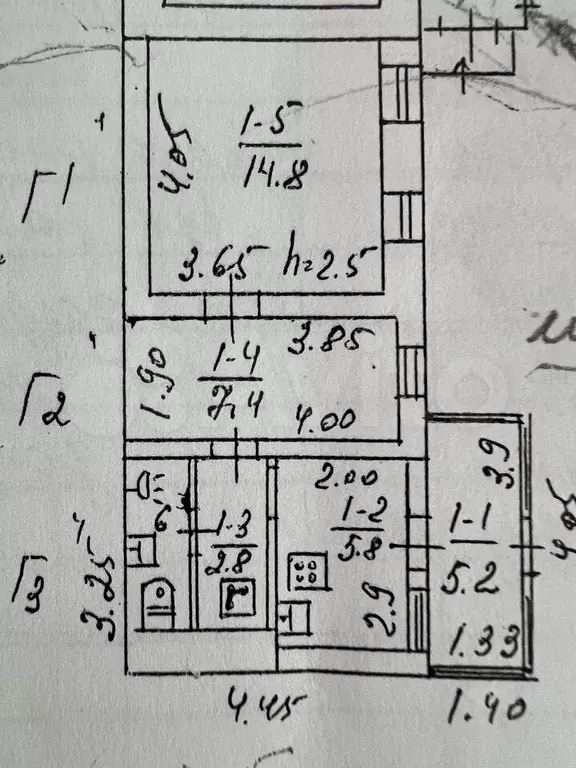 1-5
14.8
4.05
3.65 h=2.5
Г1
3.85
1-4
7.4
1.90
4.00
Г2
2.00
3.9
1-2
5.8
1-1
5.2
4.05
1-3
2.8
Г3
3.25
2.9
1.33
4.45
1.40